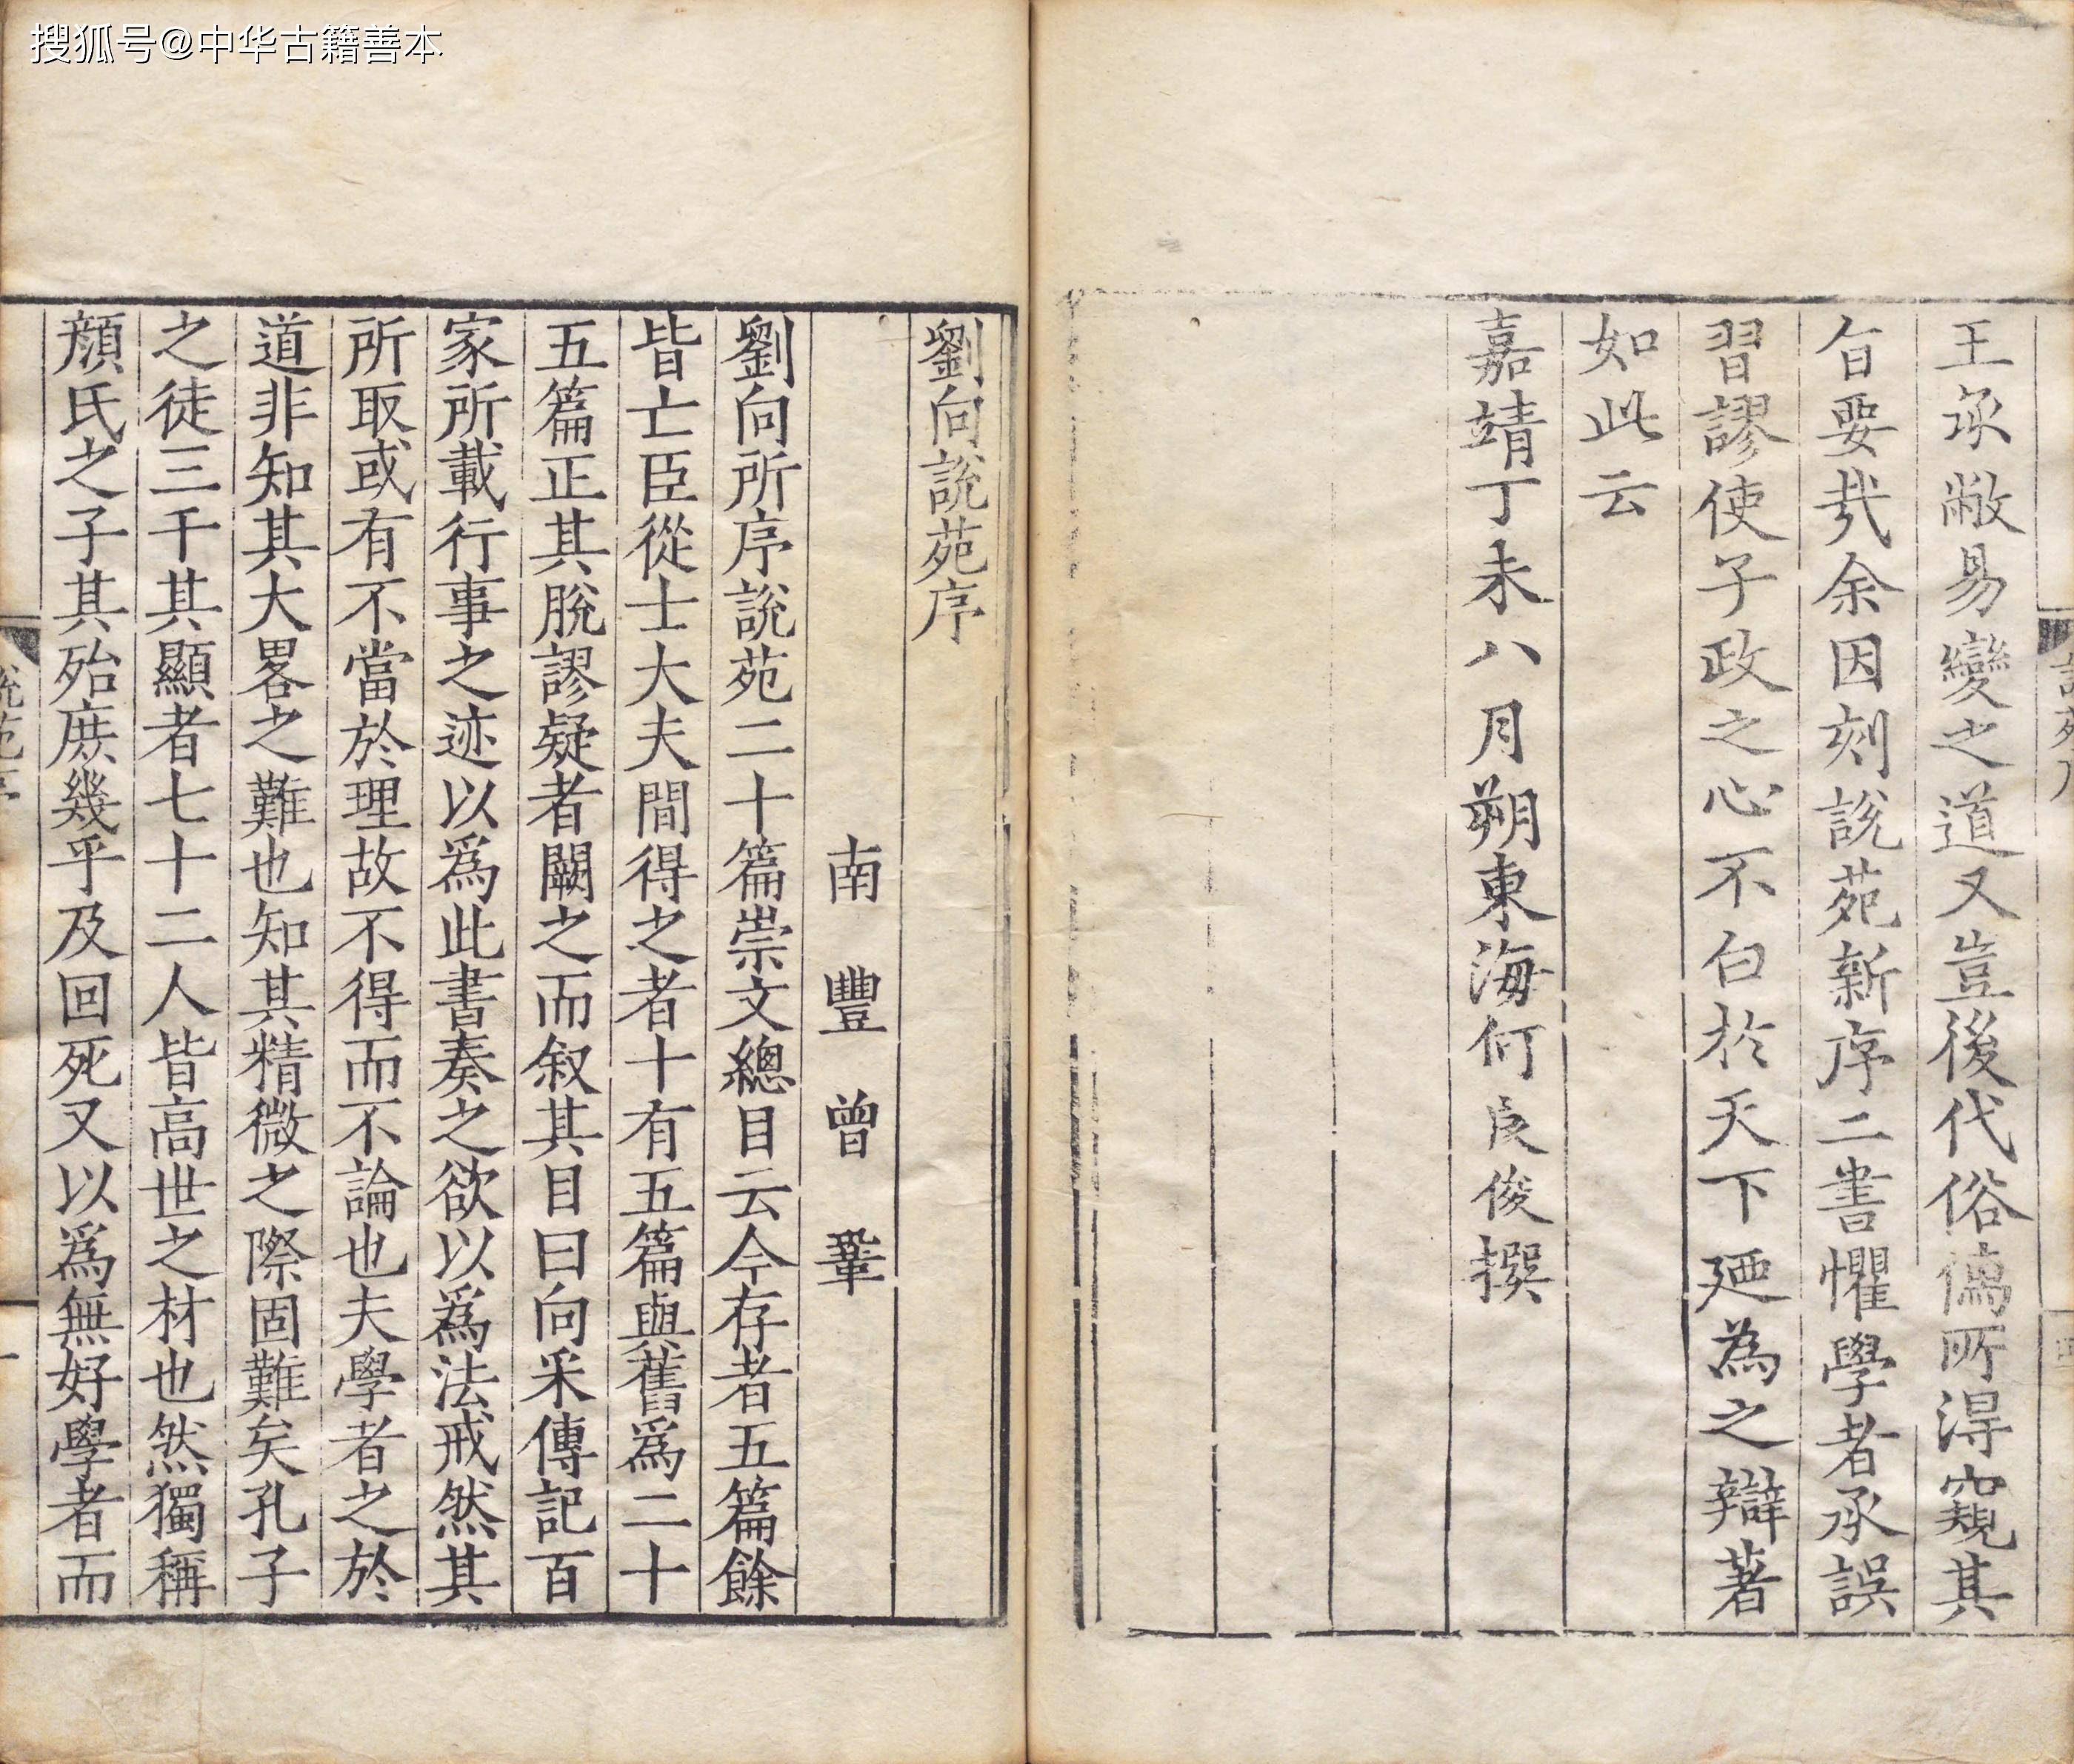 搜狐号@中华古籍善本
王承敝易變之道又豈後代俗儒所得窺其
旨要哉余因刻說苑新序二書懼學者承誤
習謬使子政之心不白於天下廼為之辯著
如此云
嘉靖丁未八月朔東海何良俊撰
劉向說苑序
南豐曾鞏
劉向所序說苑二十篇崇文總目云今存者五篇餘
皆亡臣從士大夫間得之者十有五篇與舊爲二十
五篇正其脫謬疑者闕之而叙其目曰向采傳記百
家所載行事之迹以爲此書奏之欲以爲法戒然其
所取或有不當於理故不得而不論也夫學者之於
道非知其大畧之難也知其精微之際固難矣孔子
之徒三千其顯者七十二人皆高世之材也然獨稱
顏氏之子其殆庶幾乎及回死又以爲無好學者而